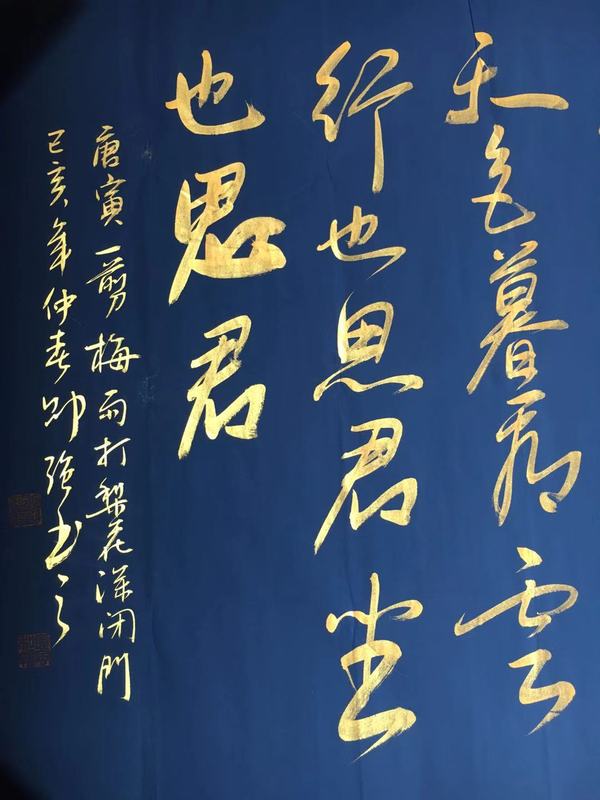 天色暮看雲
行也思君坐
也思君
唐寅一剪梅雨打梨花深闭門
己亥年仲春帅强书之